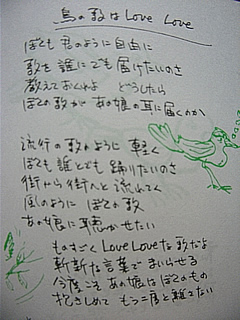 鳥の歌はLove Love
ぼくも君のように自由に
歌を誰にでも届けたいのさ
教えておくれよ どうしたら
ぼくの歌があの娘の耳に届くのか
流行の歌のように軽く
ぼくも誰とでも踊りたいのさ
街から街へと流れてく
風のように ぼくの歌
あの娘に聴かせたい
ものすごくLove Loveな歌だよ
斬新な言葉でまいらせる
今度こそあの娘はぼくのもの
抱きしめて もう二度と離さない